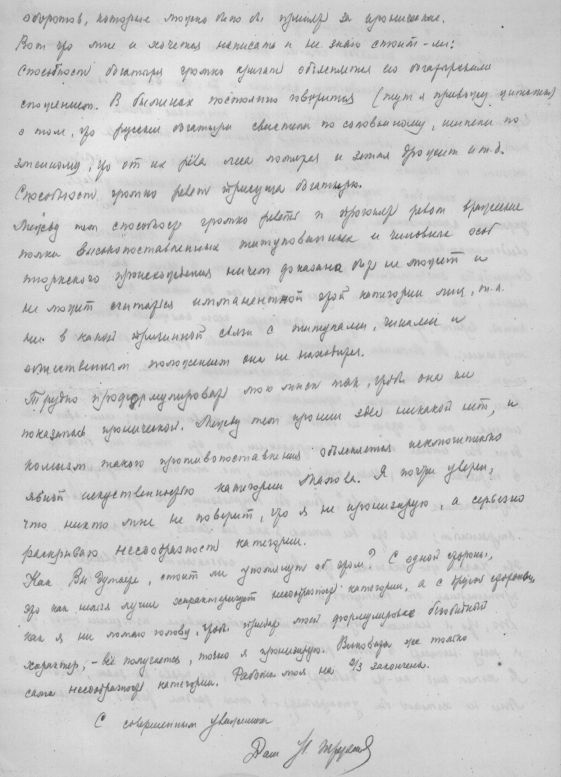 оборотов, которые можно было бы принять за ироническіе.
Вот что мне и хочется написать и не знаю стоит-ли:
Способность богатыря громко кричать объясняется его богатырским
сложением. В былинах постоянно говорится (тут я привожу цитаты)
о том, что русские богатыри свистели по соловьиному, шипели по
змеиному, что от их рёва леса и земля дрожит и т.д.
Способность громко реветь присуща богатырю.
Между тем способность громко реветь и
только высокопоставленных титулованных и чиновных особ
тюркского происхождения ничем доказана быть не может и
не может считаться имманентной этой категории лиц, т.к.
ни в какой причинной связи с титулами, чинами и
общественным положением она не находится.
Трудно проформулировать мою мысль так, чтобы она не
показалась иронической. Между тем иронии здесь никакой нет, и
комизм такого противопоставления объясняется исключительно
явной искусственностью категории. Я почти уверен,
что никто мне не поверит, что я не иронизирую, а серьезно
раскрываю несообразность категории.
Как Вы думаете, стоит ли упомянуть об этом? С одной стороны,
это как нельзя лучше характеризует несообразность категории, а с другой стороны,
как я ни ломаю голову, чтобы придать моей формулировке безобидный
характер, - всё получается, точно я иронизирую. Виновата же только
сама несообразность категории. Работа моя на 2/3 закончена.
С совершенным уважением
Ваш Н.